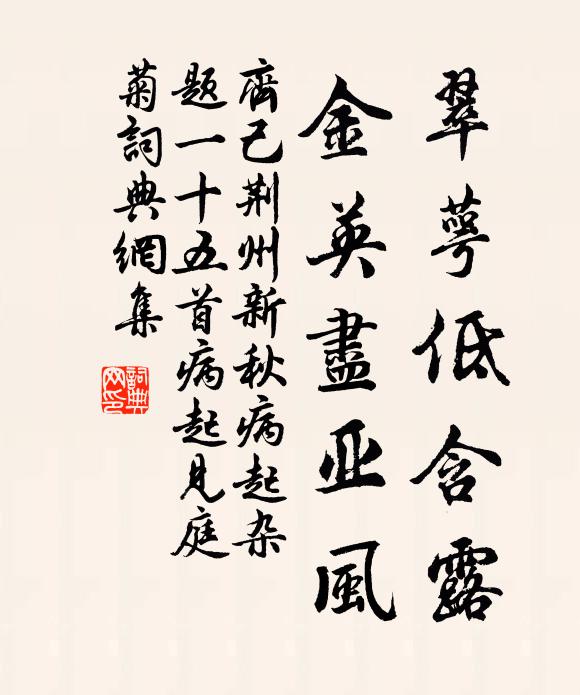 翠萼低含露
金英盡亚風
齊己荆州新秋病起杂
题一十五首病起見庭
菊詞典網集
詞典網印